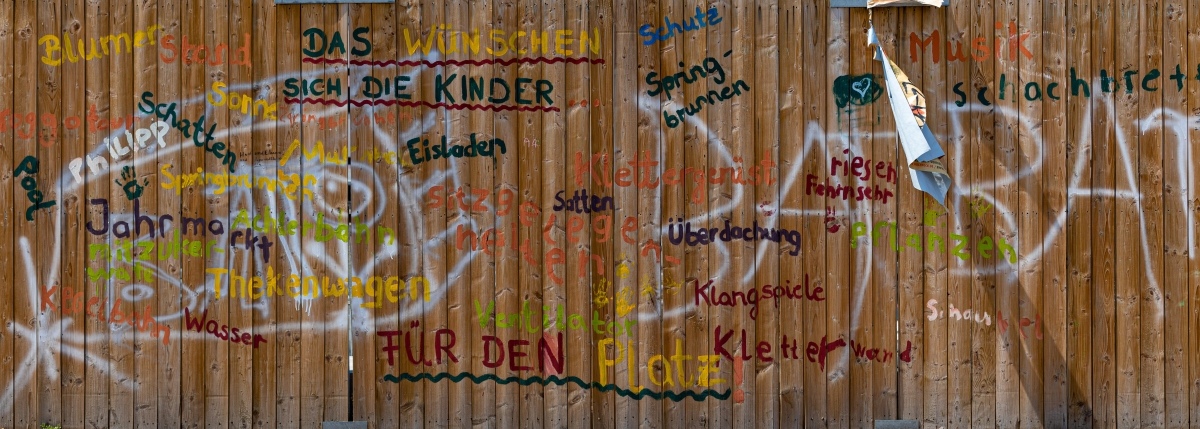 DAS WÜNSCHEN
SICH DIE KINDER
Stand
Sonne
Schatten
PHILIPP
Pool
Springbrunnen
Jahrmarkt
Achterbahn
mit Zucker
Thekenwagen
Wasser
Schutz
Spring-
brunnen
Eisladen
Klettergerüst
Sitzgelege
nheiten
Überdachung
Klangspiele
Ventilator
Musik
Schachbrett
riesen
Fehrnsehr
Pflanzen
Kletterwand
FÜR DEN Platz!